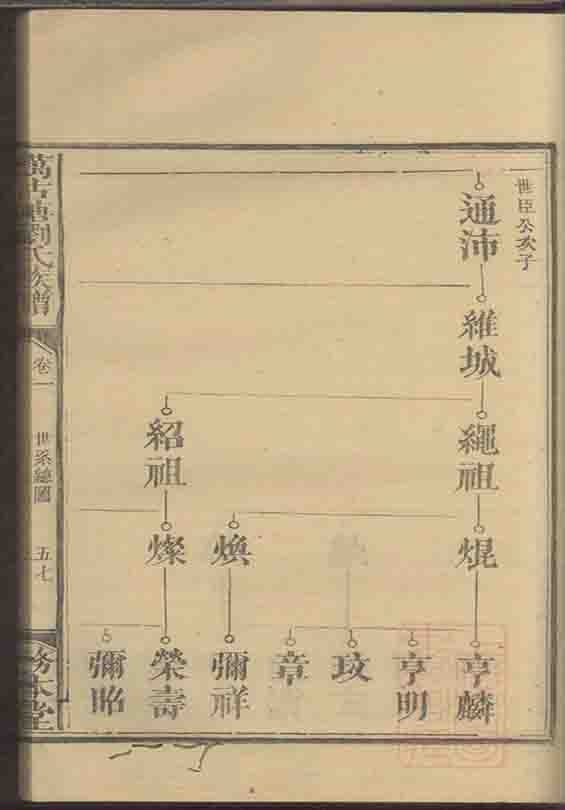 世臣公次子
通沛
維城
繩祖
紹祖
焜
煥
燦
亨麟
亨明
玟
章
彌祥
榮壽
彌昭
劉氏族譜
卷一
世系總圖
五七
務本堂